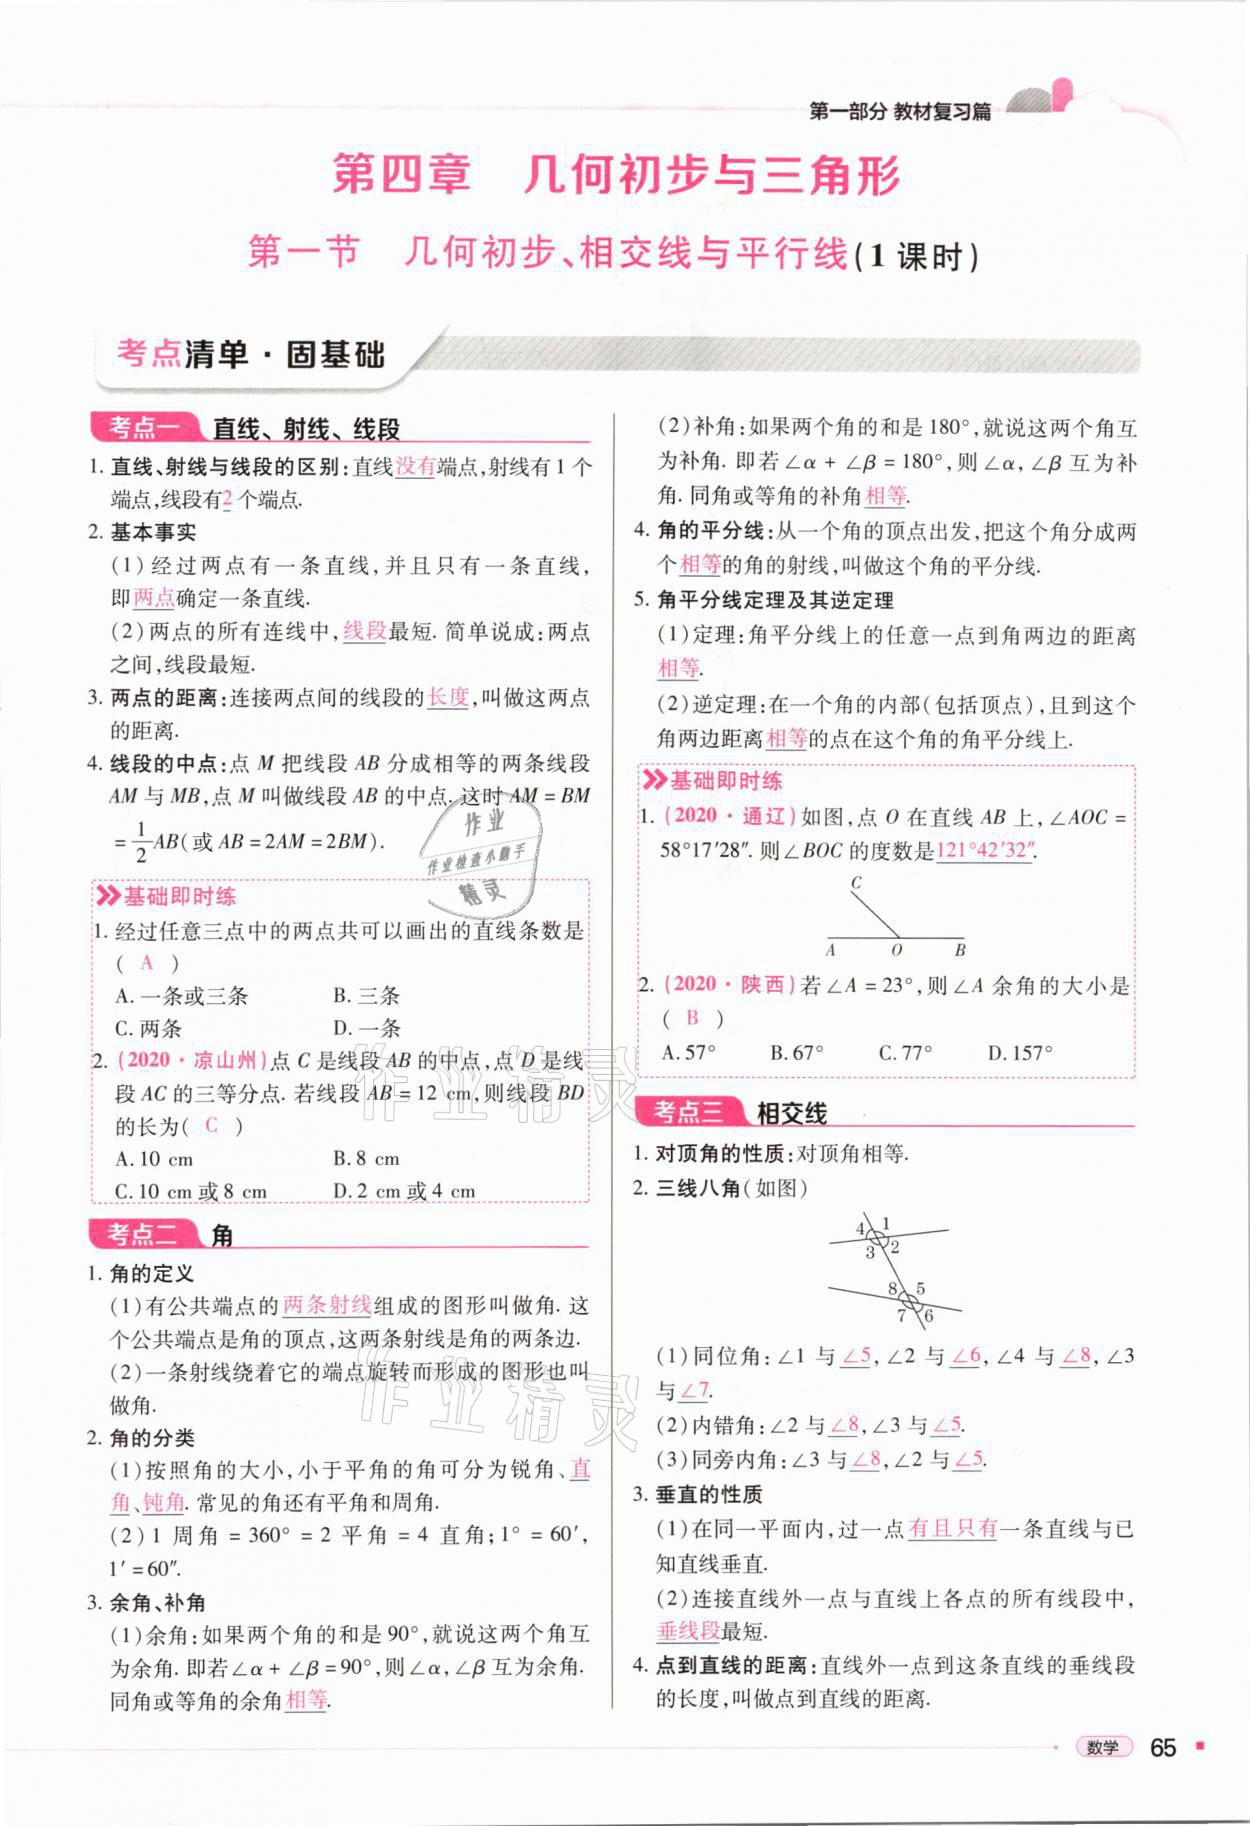 第一部分 教材复习篇
第四章 几何初步与三角形
第一节 几何初步、相交线与平行线(1课时)
考点清单·固基础
考点一 直线、射线、线段
1. 直线、射线与线段的区别:直线没有端点,射线有1个
端点,线段有2个端点.
2. 基本事实
(1)经过两点有一条直线,并且只有一条直线,
即两点确定一条直线.
(2)两点的所有连线中,线段最短. 简单说成:两点
之间,线段最短.
3. 两点的距离:连接两点间的线段的长度,叫做这两点
的距离.
4. 线段的中点:点 M 把线段 AB 分成相等的两条线段
AM 与 MB,点 M 叫做线段 AB 的中点. 这时 AM = BM
= 1/2 AB(或 AB = 2AM = 2BM).
基础即时练
1. 经过任意三点中的两点共可以画出的直线条数是
( A )
A. 一条或三条 B. 三条
C. 两条 D. 一条
2. (2020·凉山州)点 C 是线段 AB 的中点,点 D 是线
段 AC 的三等分点. 若线段 AB = 12 cm,则线段 BD
的长为( C )
A. 10 cm B. 8 cm
C. 10 cm 或 8 cm D. 2 cm 或 4 cm
考点二 角
1. 角的定义
(1)有公共端点的两条射线组成的图形叫做角. 这
个公共端点是角的顶点,这两条射线是角的两条边.
(2)一条射线绕着它的端点旋转而形成的图形也叫
做角.
2. 角的分类
(1)按照角的大小,小于平角的角可分为锐角、直
角、钝角. 常见的角还有平角和周角.
(2)1 周角 = 360° = 2 平角 = 4 直角;1° = 60′,
1′ = 60″.
3. 余角、补角
(1)余角:如果两个角的和是 90°,就说这两个角互
为余角. 即若∠α + ∠β = 90°,则∠α,∠β 互为余角.
同角或等角的余角相等.
(2)补角:如果两个角的和是 180°,就说这两个角互
为补角. 即若∠α + ∠β = 180°,则∠α,∠β 互为补
角. 同角或等角的补角相等.
4. 角的平分线:从一个角的顶点出发,把这个角分成两
个相等的角的射线,叫做这个角的平分线.
5. 角平分线定理及其逆定理
(1)定理:角平分线上的任意一点到角两边的距离
相等.
(2)逆定理:在一个角的内部(包括顶点),且到这个
角两边距离相等的点在这个角的角平分线上.
基础即时练
1. (2020·通辽)如图,点 O 在直线 AB 上,∠AOC =
58°17′28″. 则∠BOC 的度数是121°42′32″.
C
A O B
2. (2020·陕西)若∠A = 23°,则∠A 余角的大小是
( B )
A. 57° B. 67° C. 77° D. 157°
考点三 相交线
1. 对顶角的性质:对顶角相等.
2. 三线八角(如图)
4 1
3 2
8 5
7 6
(1)同位角:∠1 与∠5,∠2 与∠6,∠4 与∠8,∠3
与∠7.
(2)内错角:∠2 与∠8,∠3 与∠5.
(3)同旁内角:∠3 与∠8,∠2 与∠5.
3. 垂直的性质
(1)在同一平面内,过一点有且只有一条直线与已
知直线垂直.
(2)连接直线外一点与直线上各点的所有线段中,
垂线段最短.
4. 点到直线的距离:直线外一点到这条直线的垂线段
的长度,叫做点到直线的距离.
作业
作业检查小助手
精灵
作业精灵
作业精灵
数学 65